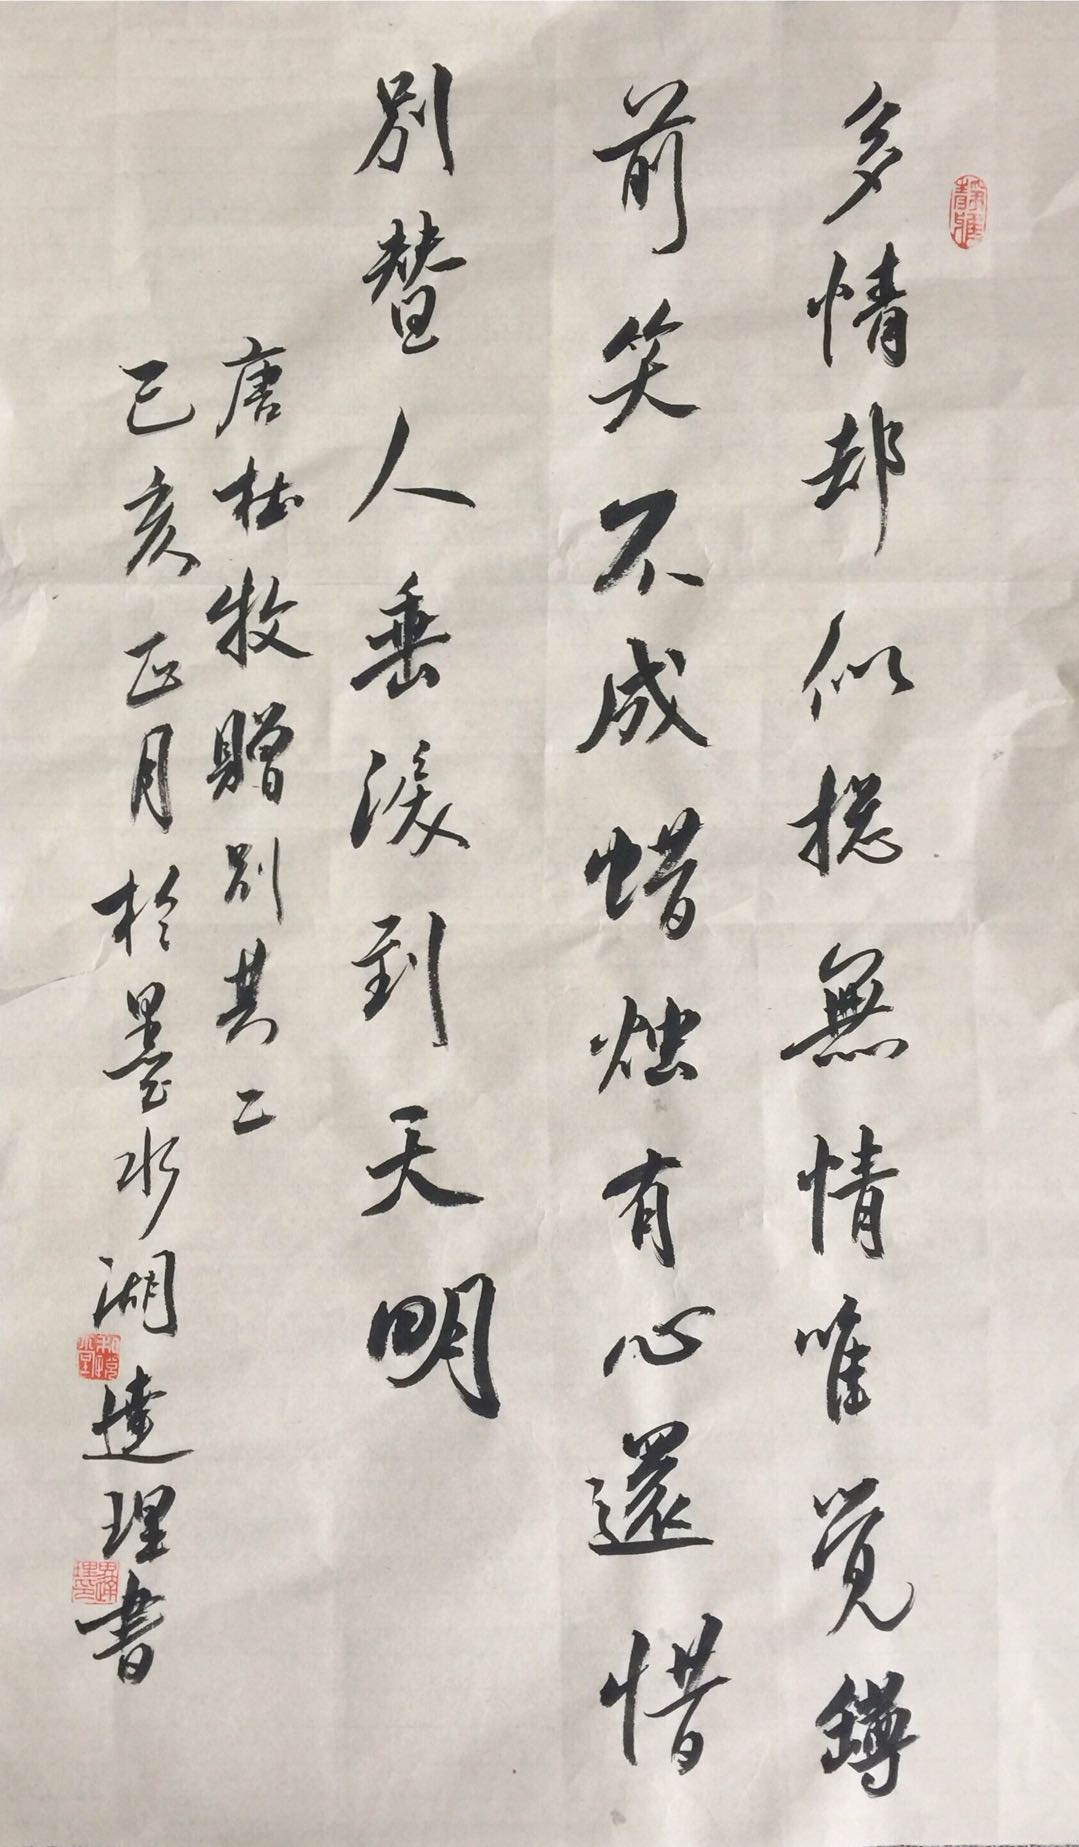 多情却似捴無情唯覺鐏
前笑不成蜡烛有心還惜
別替人垂淚到天明
唐杜牧贈別其二
己亥正月於墨水湖達理書